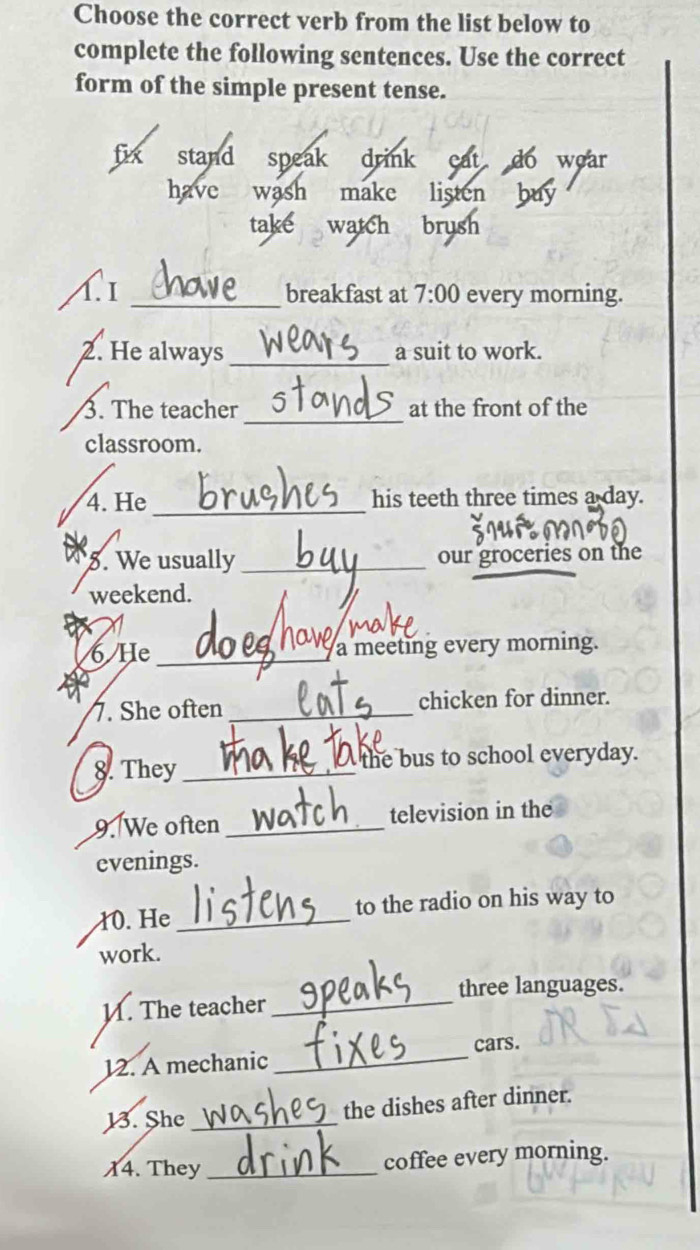 Choose the correct verb from the list below to
complete the following sentences. Use the correct
form of the simple present tense.
fix stand speak drink eat do wear
have wash make listen buy
take watch brush
1. I have breakfast at 7:00 every morning.
2. He always wears a suit to work.
3. The teacher stands at the front of the
classroom.
4. He brushes his teeth three times a day.
5. We usually buy our groceries on the
weekend.
6. He does have/make a meeting every morning.
7. She often eats chicken for dinner.
8. They make take the bus to school everyday.
9. We often watch television in the
evenings.
10. He listens to the radio on his way to
work.
11. The teacher speaks three languages.
12. A mechanic fixes cars.
13. She washes the dishes after dinner.
14. They drink coffee every morning.